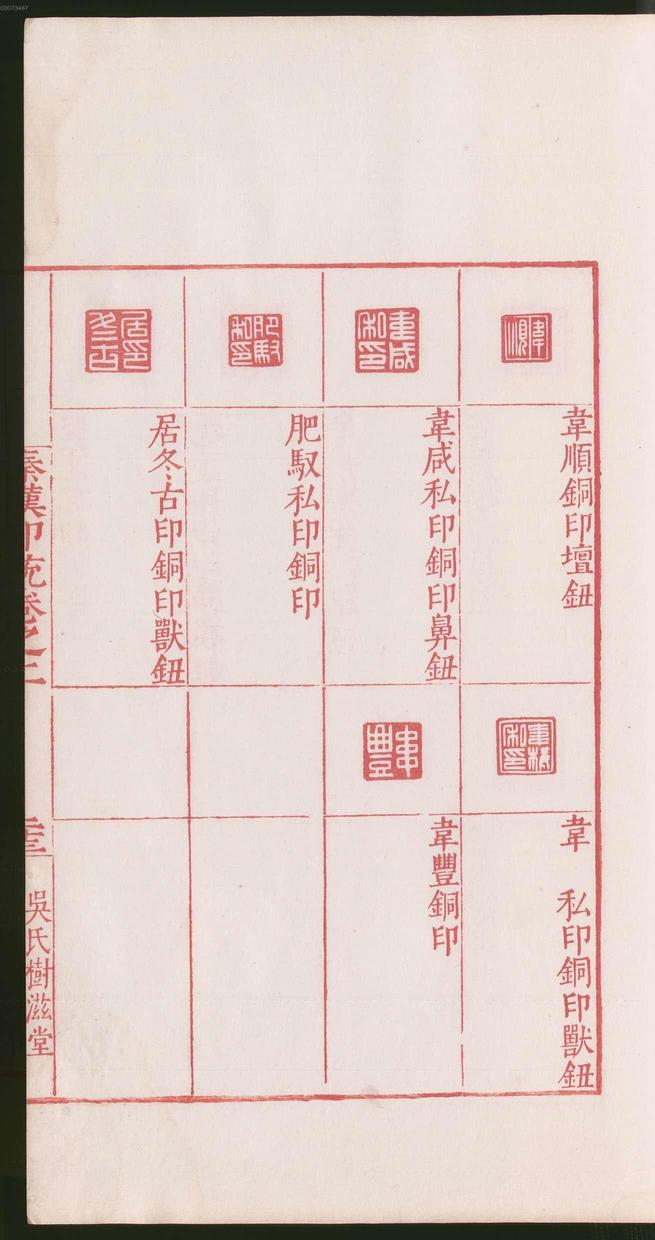 韋順銅印壇鈕
韋咸私印銅印鼻鈕
肥馭私印銅印
居冬古印銅印獸鈕
韋　私印銅印獸鈕
韋豐銅印
秦漢印統卷之二
吳氏樹滋堂
00073487